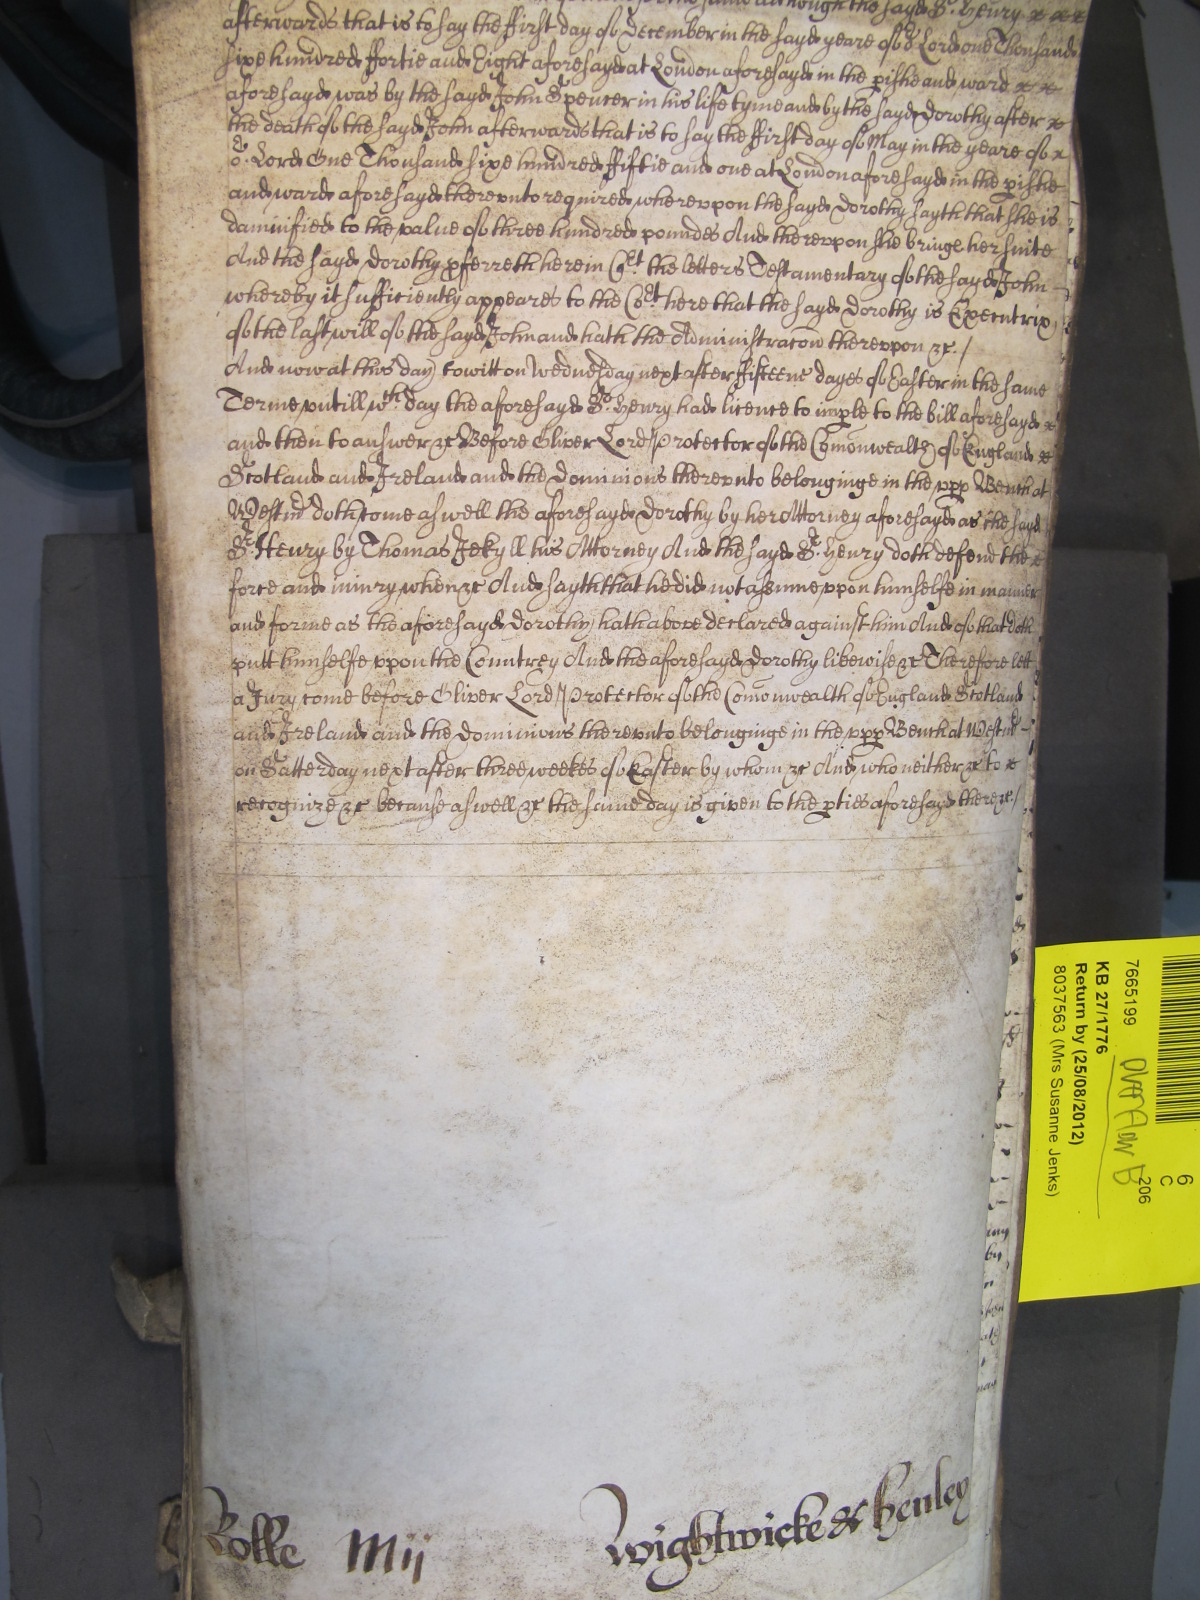 the same although the sayd Sr. Henry
afterwards that is to say the ffirst day of December in the sayd yeare of or Lord one Thousand
sixe hundred ffortie and Eight aforesayd at London aforesayd in the pishe and ward
aforesayd was by the sayd John Spencer in his life tyme and by the sayd Dorothy after
the death of the sayd John afterwards that is to say the ffirst day of May in the yeare of
or. Lord One Thousand sixe hundred ffiftie and one at London aforesayd in the pishe
and ward aforesayd therevnto required wherevpon the sayd Dorothy sayth that she is
damnified to the value of three hundred poundes And therevpon she bringe her suite
And the sayd Dorothy pferreth here in Cort the letters Testamentary of the sayd John
whereby it sufficiently appeares to the Cort here that the sayd Dorothy is Executrix
of the last will of the sayd John and hath the Administracon therevpon &c./
And now at this day towitt on Wednesday next after ffifteene dayes of Easter in the same
Terme vntill wth. day the aforesayd Sr. Henry had licence to imple to the bill aforesayd
and then to answer &c Before Oliver Lord Protector of the Comonwealth of England
Scotland and Ireland and the Dominions therevnto belonginge in the vpp Bench at
Westmr doth come aswell the aforesayd Dorothy by her Attorney aforesayd as the sayd
Sr. Henry by Thomas Jekyll his Attorney And the sayd Sr. Henry doth defend the
force and iniury when &c And sayth that he did not assume vpon himselfe in manner
and forme as the aforesayd Dorothy hath above declared against him And of that doth
putt himselfe vpon the Countrey And the aforesayd Dorothy likewise &c Therefore lett
a Jury come before Oliver Lord Protector of the Comonwealth of England Scotland
and Ireland and the Dominions therevnto belonginge in the vpp Bench at Westmr
on Satterday next after three weekes of Easter by whom &c And who neither &c to
recognize &c because aswell &c the same day is given to the pties aforesayd there &c./
Rolle Mij Wightwicke & Henley
7665199
KB 27/1776
Return by (25/08/2012)
8037563 (Mrs Susanne Jenks)
206
6
C